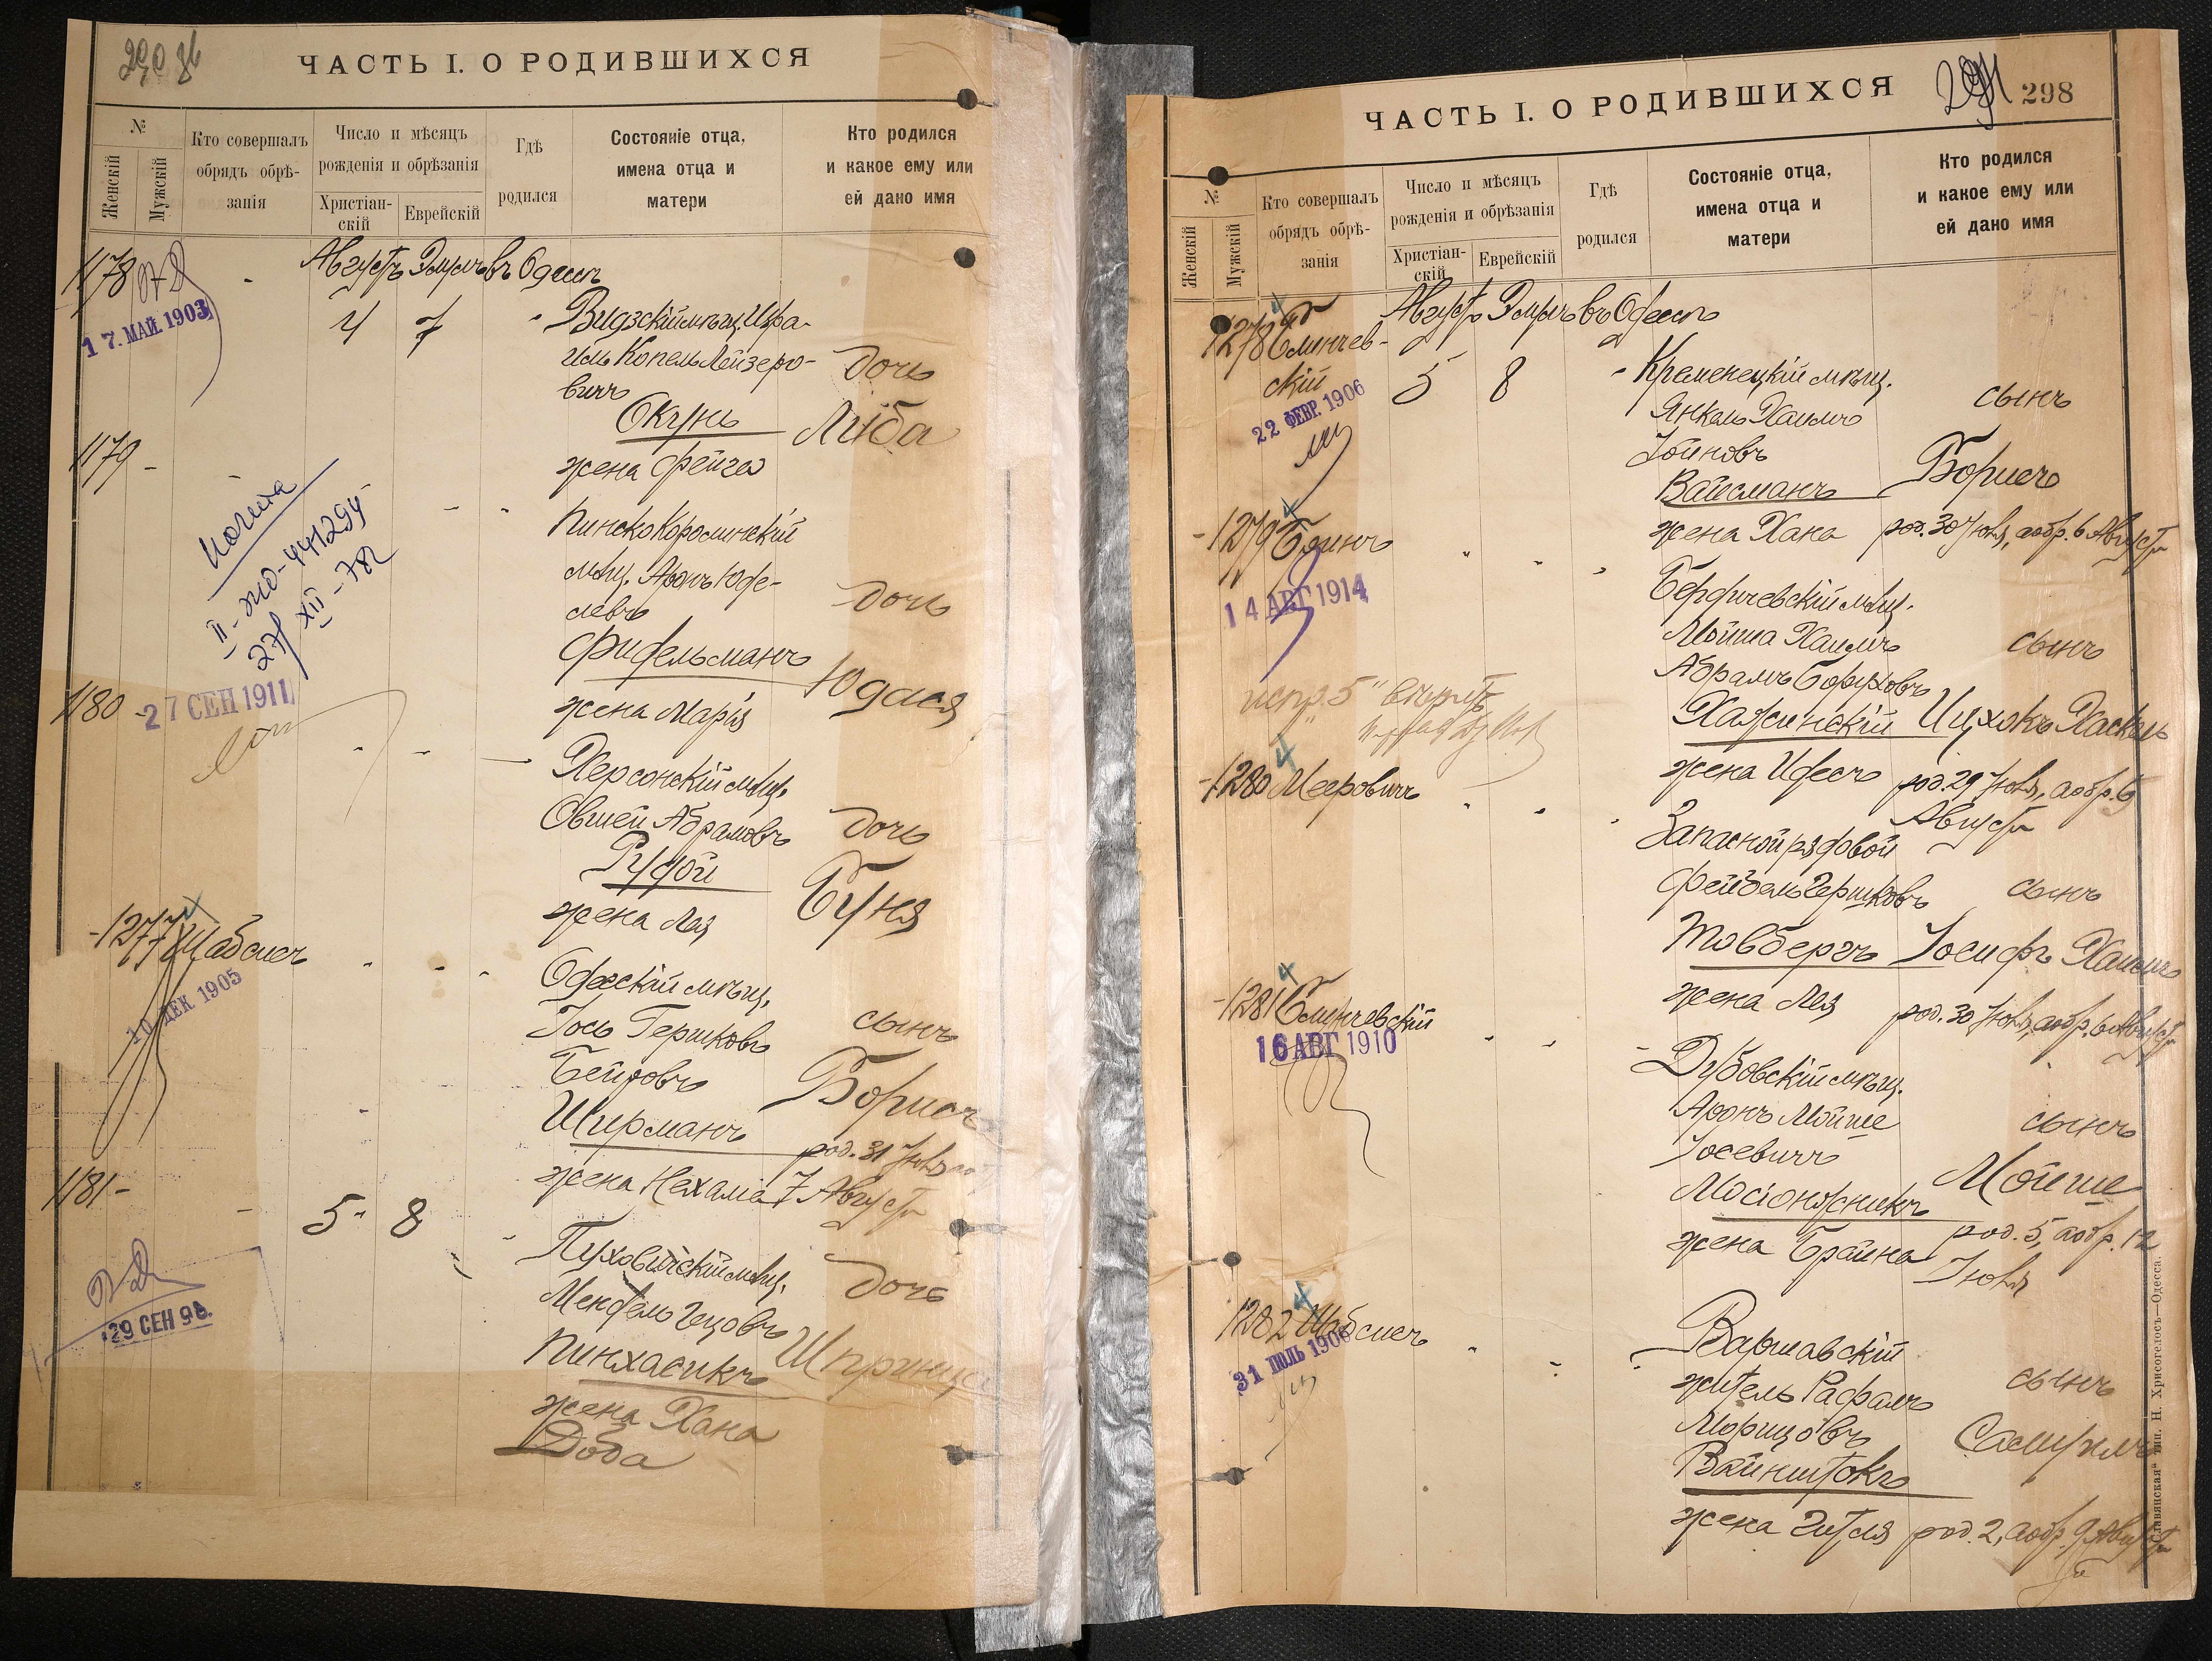 ЧАСТЬ I. О РОДИВШИХСЯ
№
Женскій
Мужскій
Кто совершалъ
обрядъ обрѣ-
занія
Число и мѣсяцъ
рожденія и обрѣзанія
Христіан-
скій
Еврейскій
Гдѣ
родился
Состояніе отца,
имена отца и
матери
Кто родился
и какое ему или
ей дано имя
Августъ Элулъ въ Одессѣ
1178
17. МАЙ. 1903
4 7
Видзскій мѣщ. Изра-
иль Копель Лейзеро-
вичъ
Окунь
жена Фейга
дочь
Либа
1179 -
Пинско Каролинскій
мѣщ. Аронъ Юде-
левъ
Фидельманъ
жена Марія
дочь
Юдася
II-ЖО-441294
27/XII-78
1180 -
27 СЕН 1911
Херсонскій мѣщ.
Овшей Абрамовъ
Рудой
жена Лея
дочь
Буня
-1277 Шабсисъ
10 ДЕК 1905
Одесскій мѣщ.
Іось Гершковъ
Бейровъ
Ширманъ
жена Нехама
сынъ
Борисъ
род. 31 Іюля
7 Августа
1181 -
29 СЕН 98.
5 8
Пуховичскій мѣщ.
Мендель Гецовъ
Пинхасикъ
жена Хана
Доба
дочь
Шпринца
ЧАСТЬ I. О РОДИВШИХСЯ
298
№
Женскій
Мужскій
Кто совершалъ
обрядъ обрѣ-
занія
Число и мѣсяцъ
рожденія и обрѣзанія
Христіан-
скій
Еврейскій
Гдѣ
родился
Состояніе отца,
имена отца и
матери
Кто родился
и какое ему или
ей дано имя
Августъ Элулъ въ Одессѣ
1278
скій
22 ФЕВР. 1906
5 8
Кременецкій мѣщ.
Янкель Хаимъ
Іойновъ
Вайсманъ
жена Хана
сынъ
Борисъ
род. 30 Іюля, а обр. 6 Августа
-1279
14 АВГ 1914
Бердичевскій мѣщ.
Мойша Хаимъ
Абрамъ Боруховъ
Хажинскій
жена Идесъ
сынъ
Ицхокъ Хаскель
род. 29 Іюля, а обр. 5
Августа
-1280 Мееровичъ
Запасной рядовой
Фейбель Гершковъ
Товбергъ
жена Лея
сынъ
Іосифъ Хаимъ
род. 30 Іюля, а обр. 6 Августа
-1281
16 АВГ 1910
Дубовскій мѣщ.
Аронъ Мойше
Іосевичъ
Мосіонжникъ
жена Брайна
сынъ
Мойше
род. 5, а обр. 12
Іюля
1282 Шабсисъ
31 ІЮЛЬ 1906
Варшавскій
житель Рафалъ
Морицовъ
Вайнштокъ
жена Гитля
сынъ
Самуилъ
род. 2, а обр. 9 Августа
„Славянская“ тип. Н. Хрисогелосъ—Одесса.